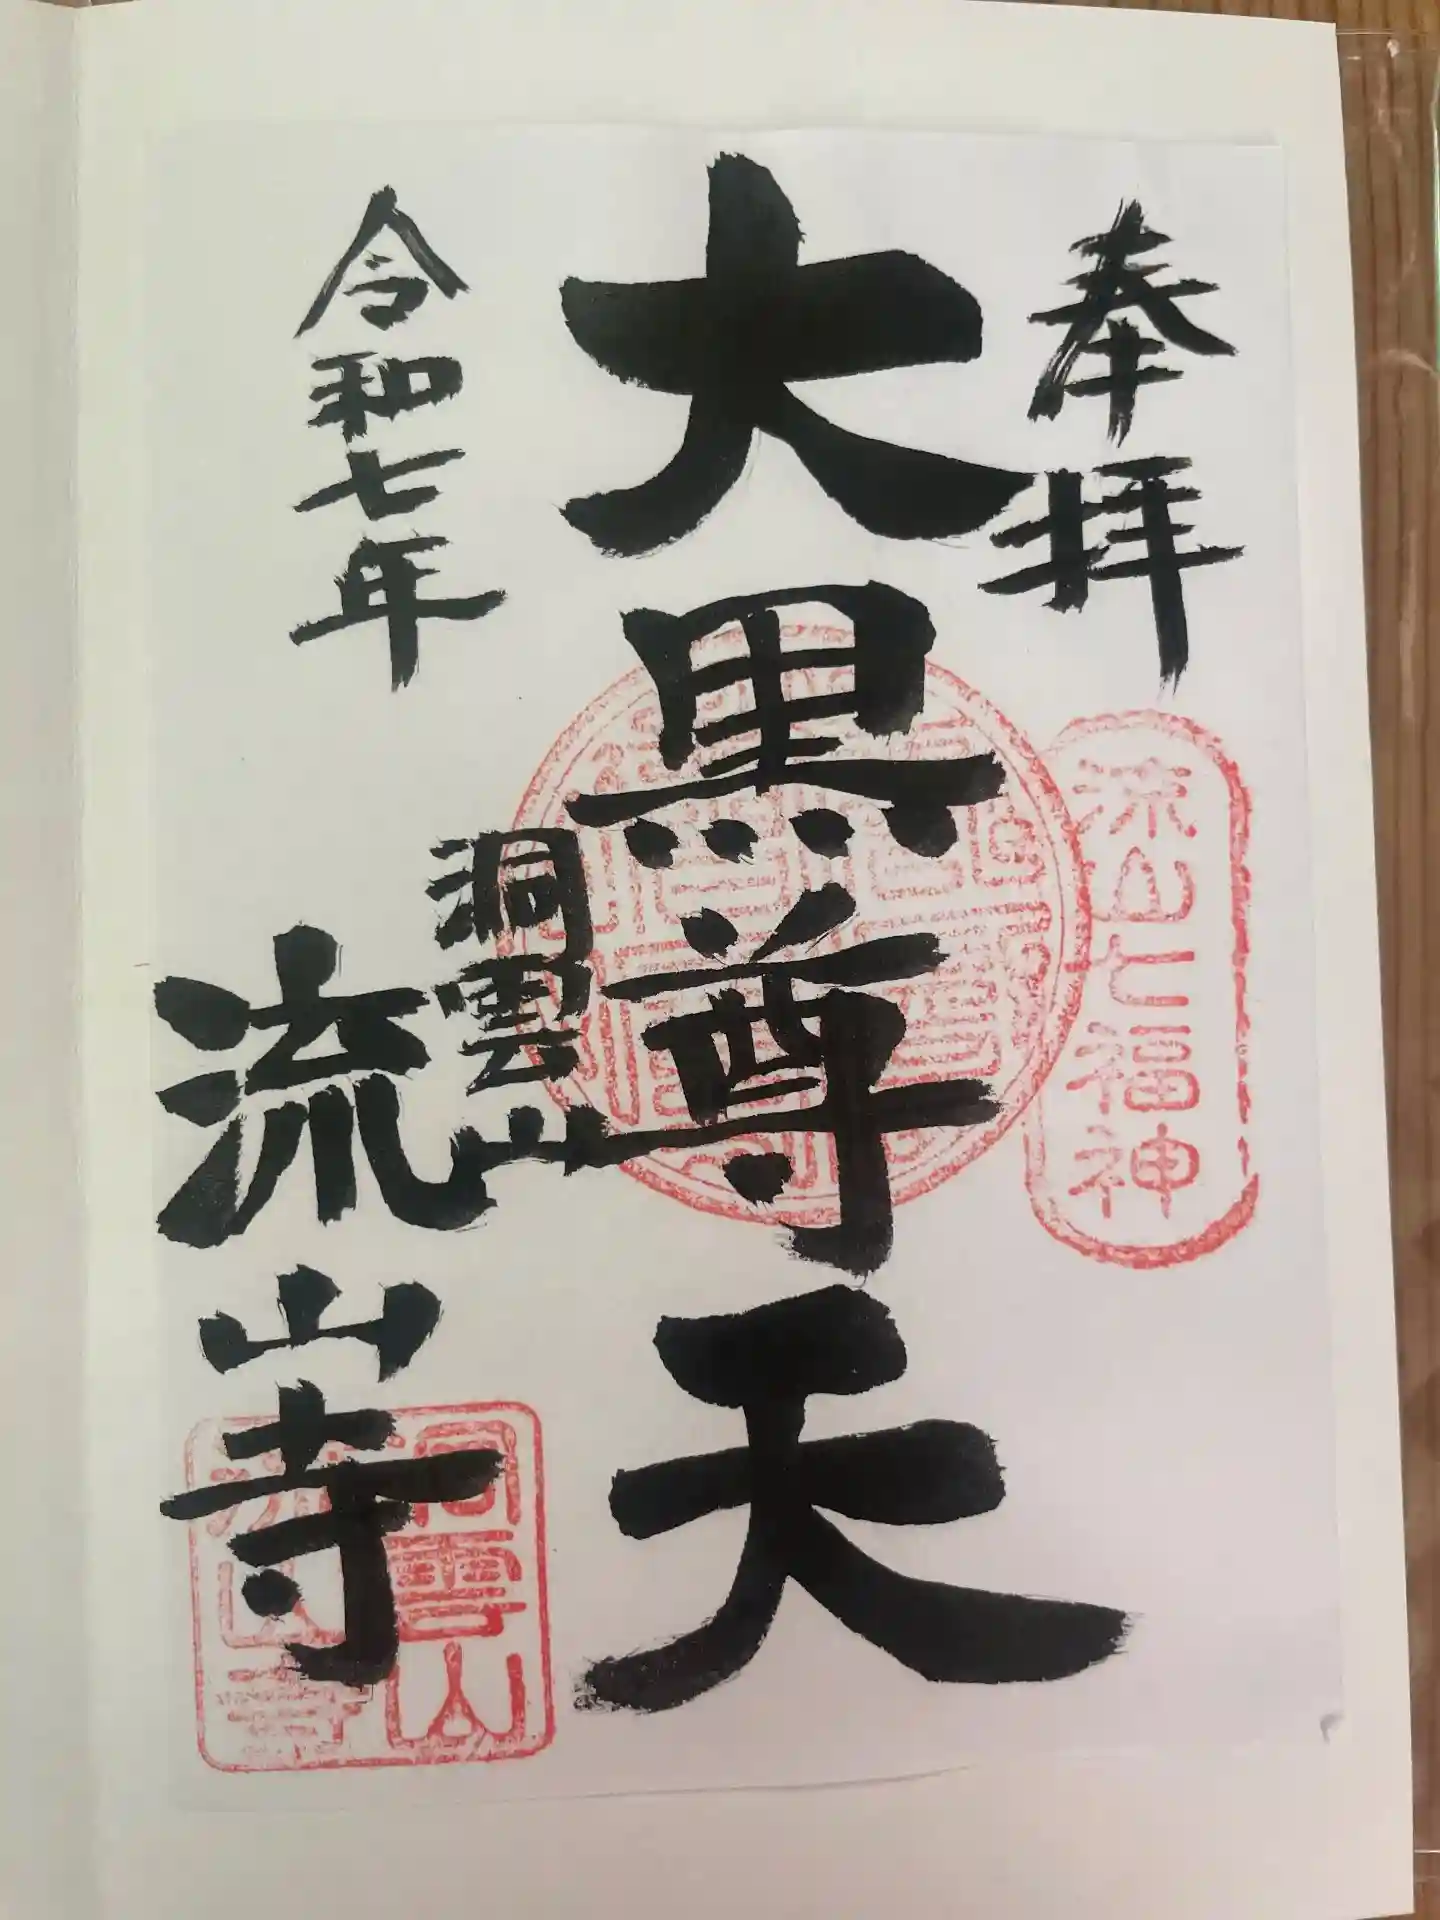 奉拝
流山七福神
大黒尊天
洞雲山
流山寺
令和七年
洞雲山